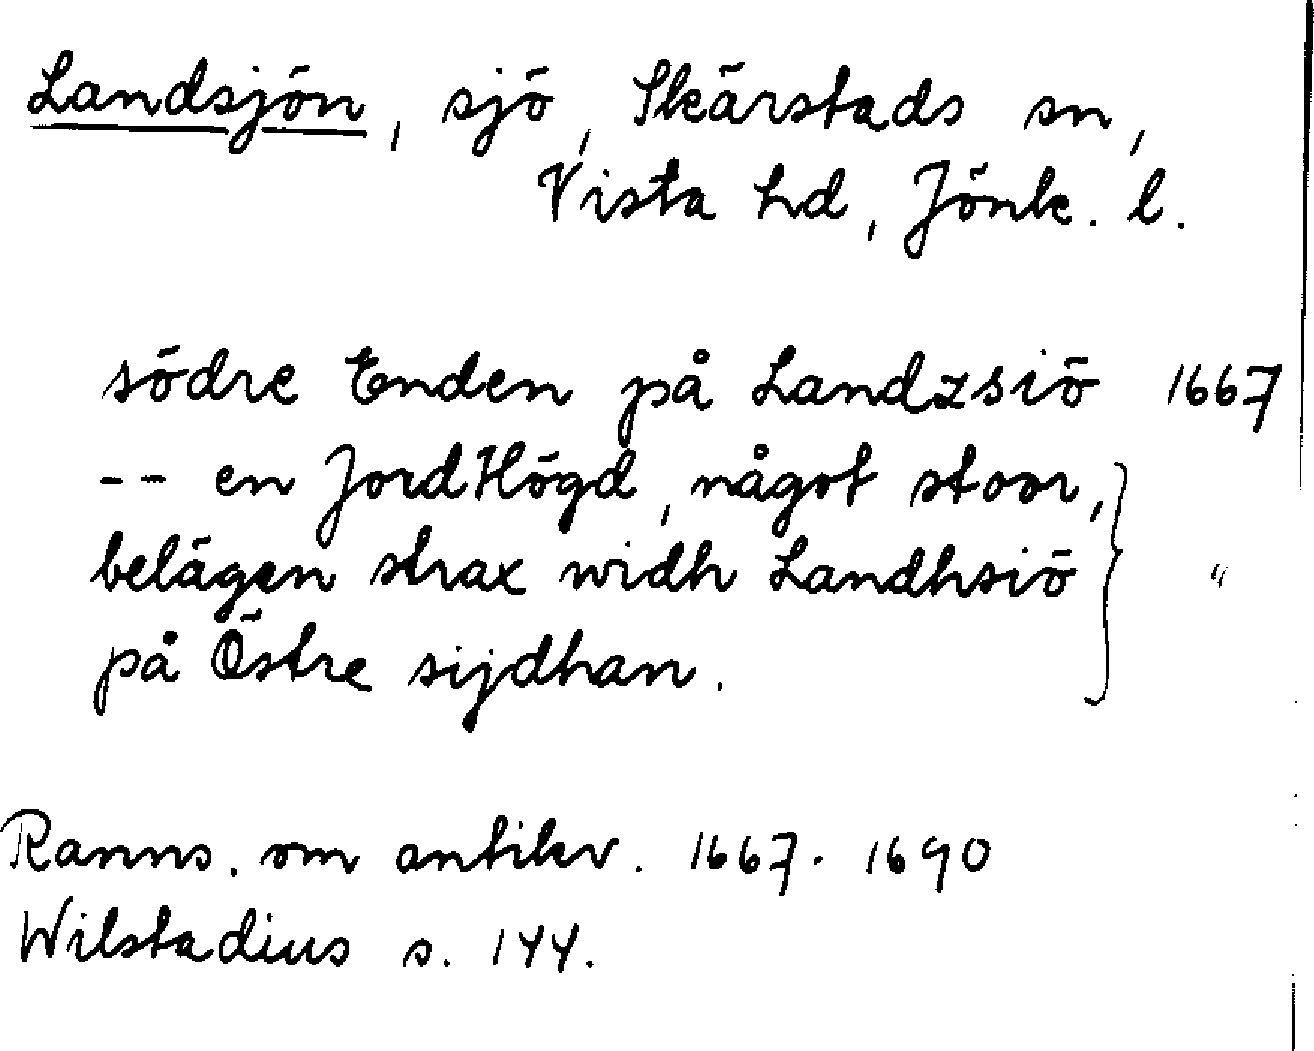 Landsjön, sjö, Skärstads sn,
Vista hd, Jönk. l.
södre Enden på Landzsiö 1667
-- en Jord Högd, något stoor,
belägen strax widh Landhsiö "
på Östre sijdhan.
Ranns. om antikv. 1667-1690
Wilstadius s. 144.